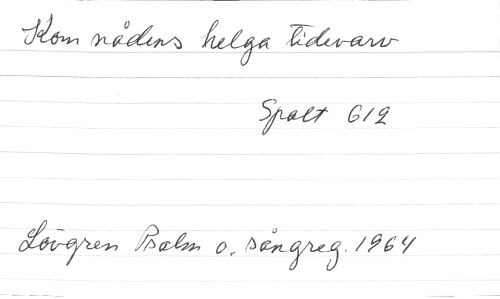 Kom nådens helga tidevarv
Spalt 612
Lövgren Psalm o. sångreg. 1964